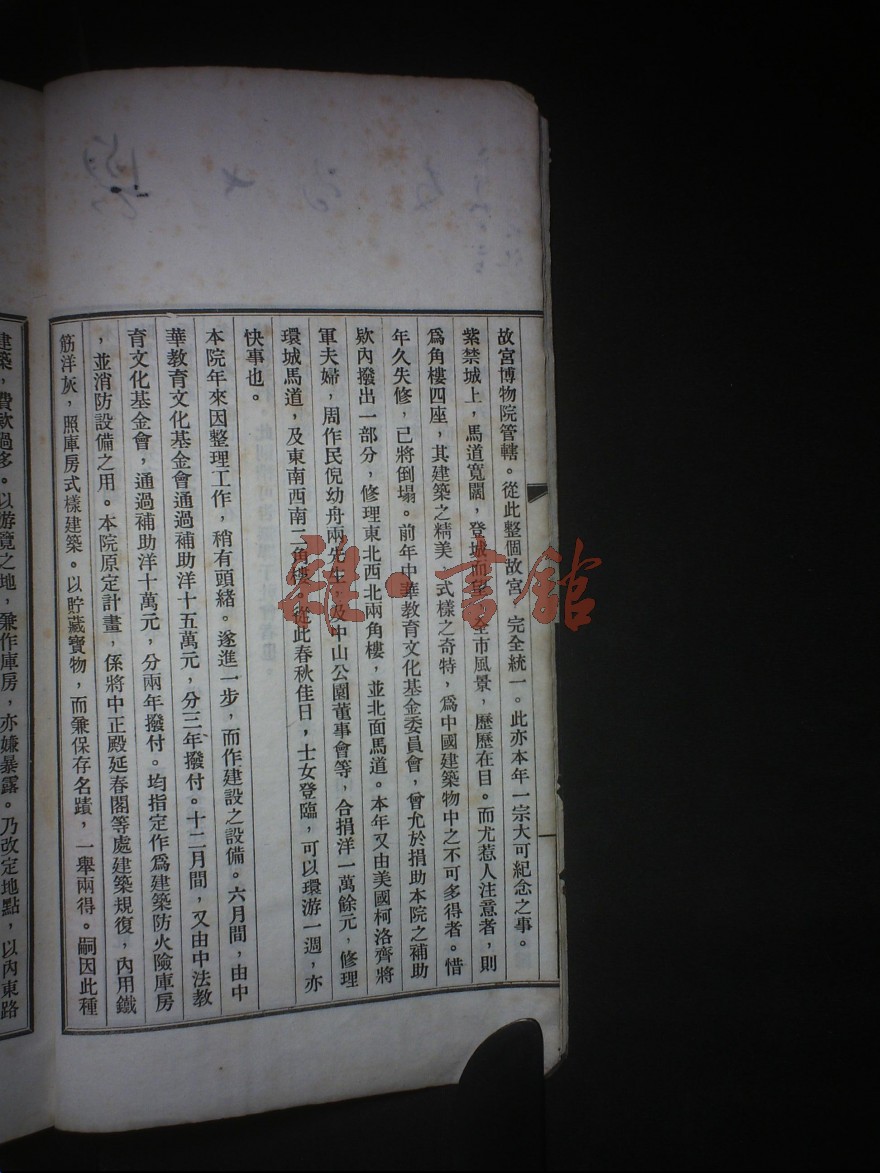 故宮博物院管轄。從此整個故宮　完全統一。此亦本年一宗大可紀念之事。
紫禁城上，馬道寬闊，登城而望，全市風景，歷歷在目。而尤惹人注意者，則
爲角樓四座，其建築之精美，式樣之奇特，爲中國建築物中之不可多得者。惜
年久失修，已將倒塌。前年中華教育文化基金委員會，曾允於捐助本院之補助
欵內撥出一部分，修理東北西北兩角樓，並北面馬道。本年又由美國柯洛齊將
軍夫婦，周作民倪幼舟兩先生，及中山公園董事會等，合捐洋一萬餘元，修理
環城馬道，及東南西南二角樓，從此春秋佳日，士女登臨，可以環游一週，亦
快事也。
本院年來因整理工作，稍有頭緒。遂進一步，而作建設之設備。六月間，由中
華教育文化基金會通過補助洋十五萬元，分三年撥付。十二月間，又由中法教
育文化基金會，通過補助洋十萬元，分兩年撥付。均指定作爲建築防火險庫房
，並消防設備之用。本院原定計畫，係將中正殿延春閣等處建築規復，內用鐵
筋洋灰，照庫房式樣建築。以貯藏寶物，而兼保存名蹟，一舉兩得。嗣因此種
建築，費欵過多。以游覽之地，兼作庫房，亦嫌暴露。乃改定地點，以內東路
雜·書館